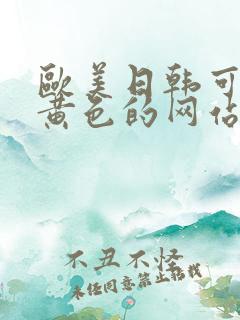 歐美日韩可
黄色的网佔
不丑不怪
未经同意禁止转载